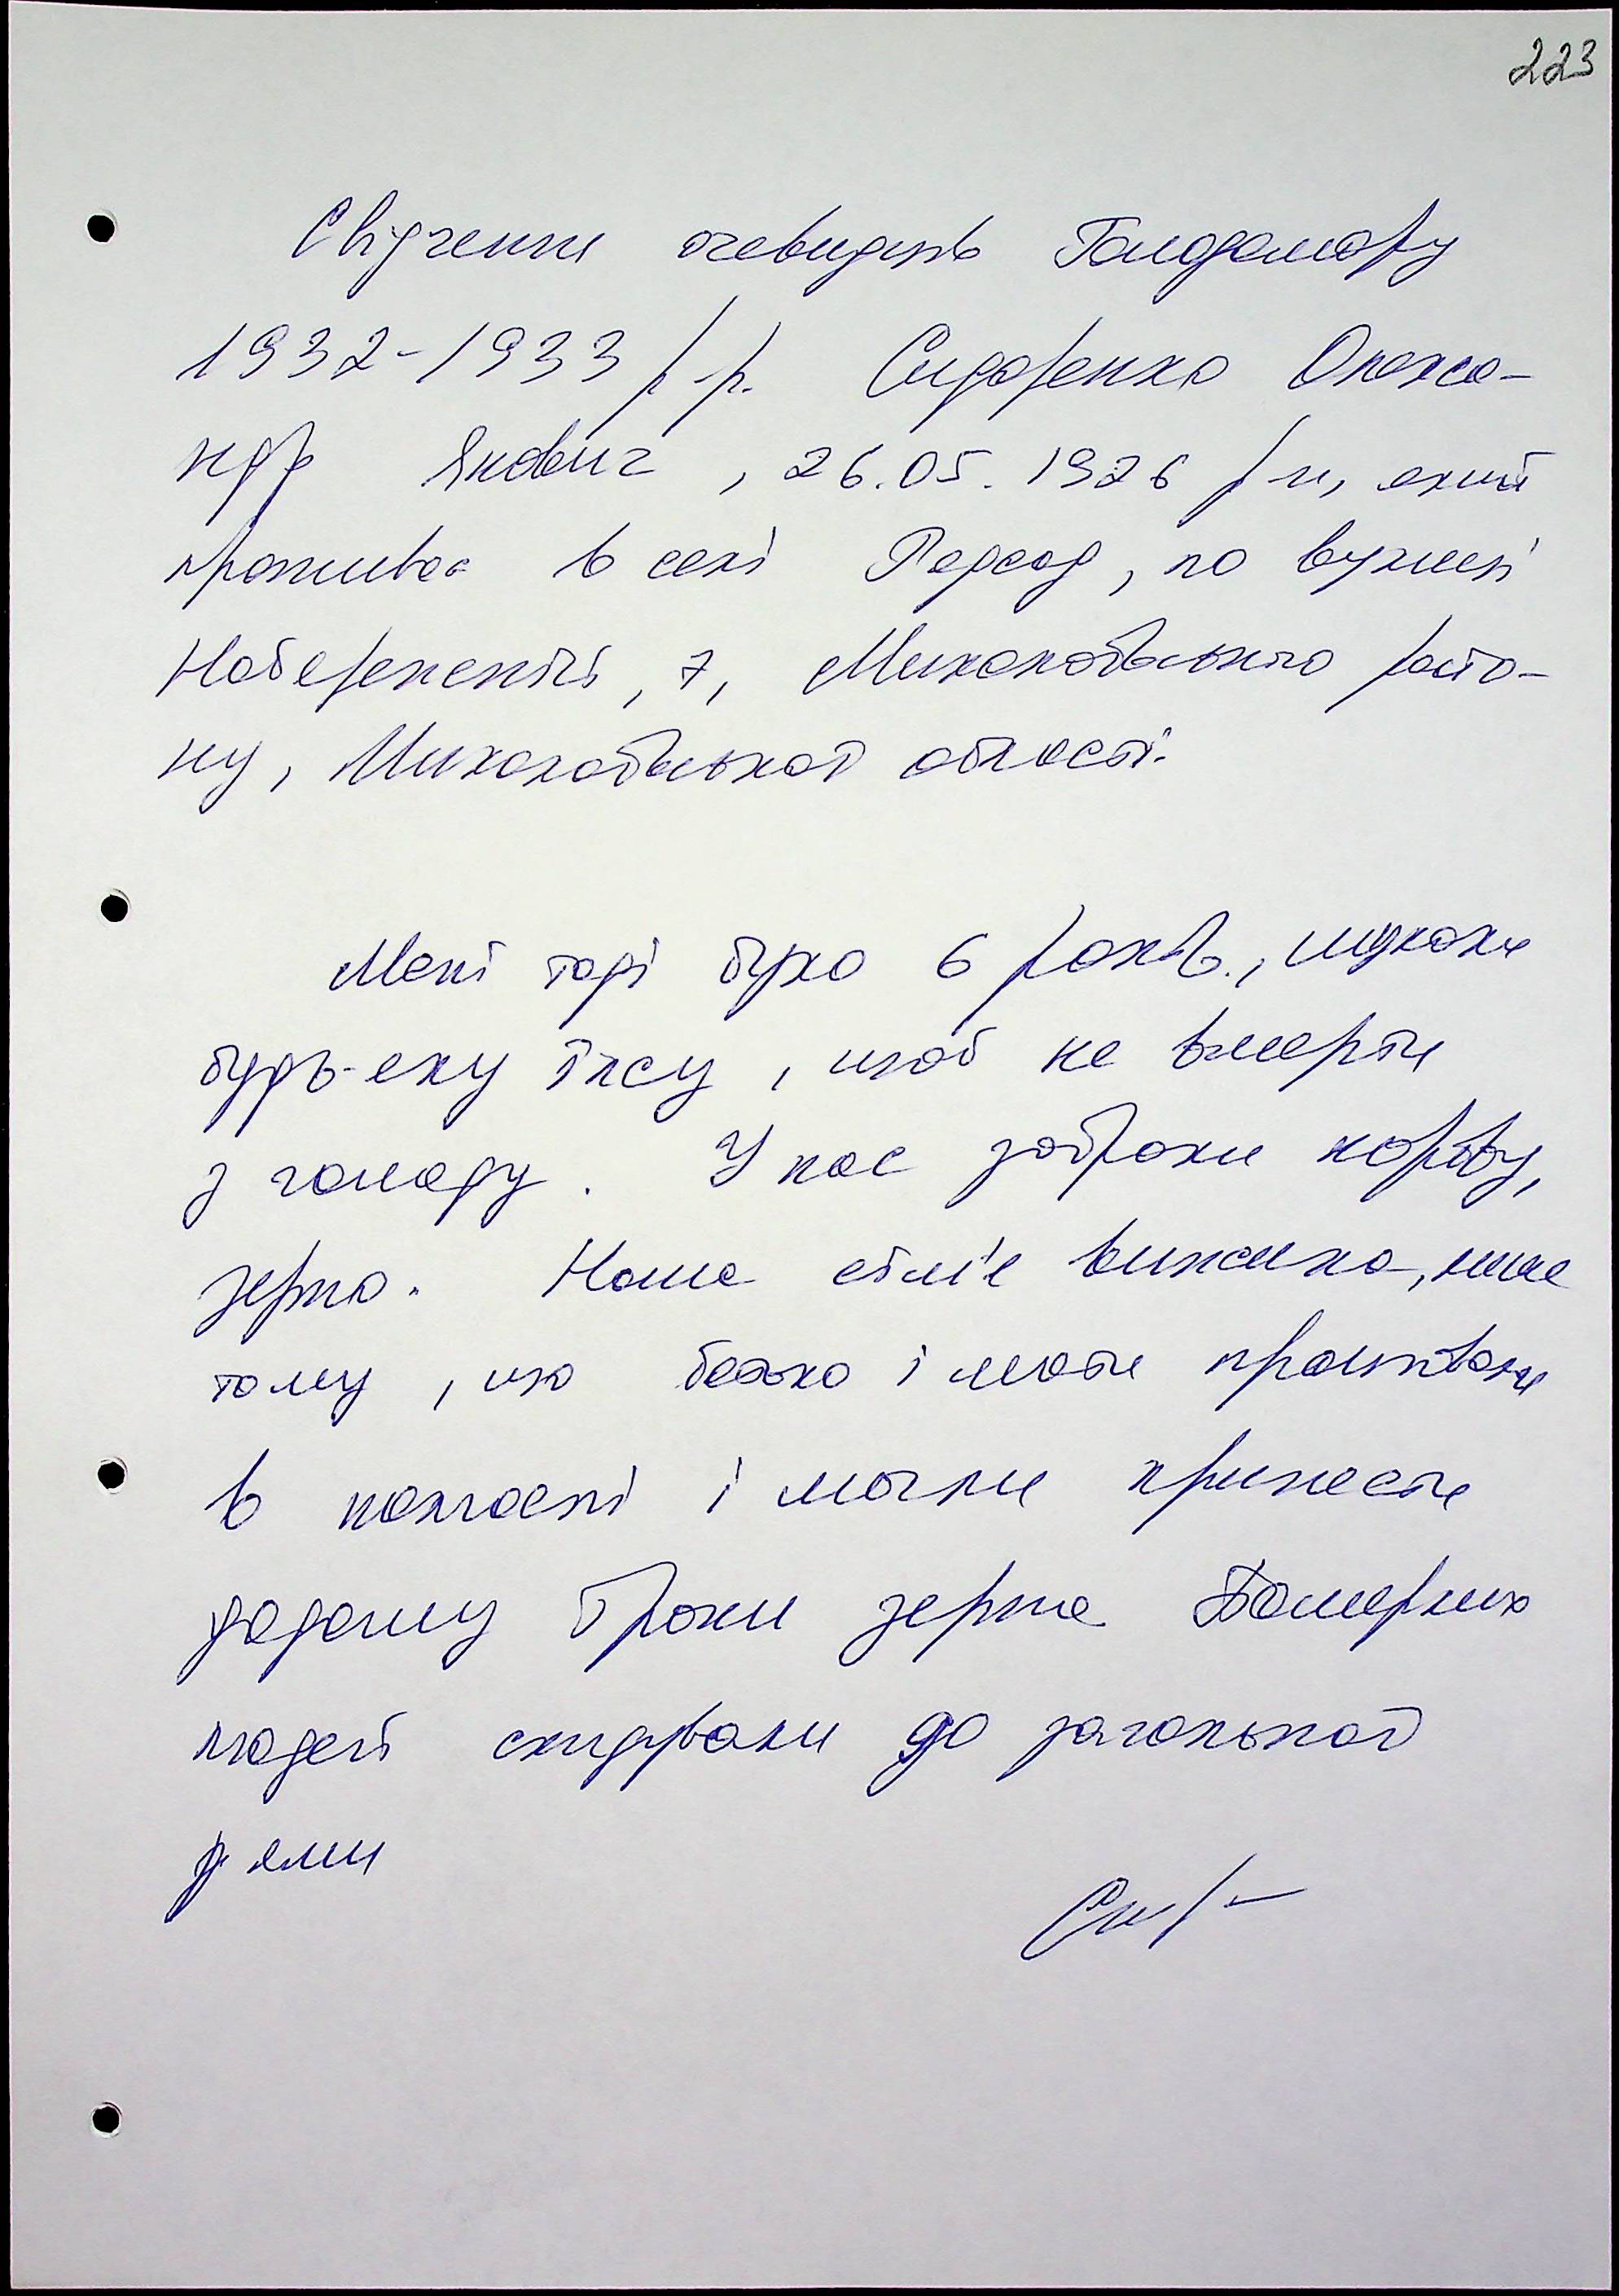 223
Свідчення очевидців Голодомору
1932-1933 р.р. Сидоренко Олекса-
ндр Якович, 26.05.1926 р.н, який
проживає в селі Радсад, по вулиці
Набережній, 7, Миколаївського райо-
ну, Миколаївської області.
Мені тоді було 6 років., шукали
будь-яку їжу, щоб не вмерти
з голоду. У нас забрали корову,
зерно. Наша сім'я вижила, лише
тому, що батько і мати працювали
в колгоспі і могли принести
додому трохи зерна Померлих
людей скидували до загальної
ями